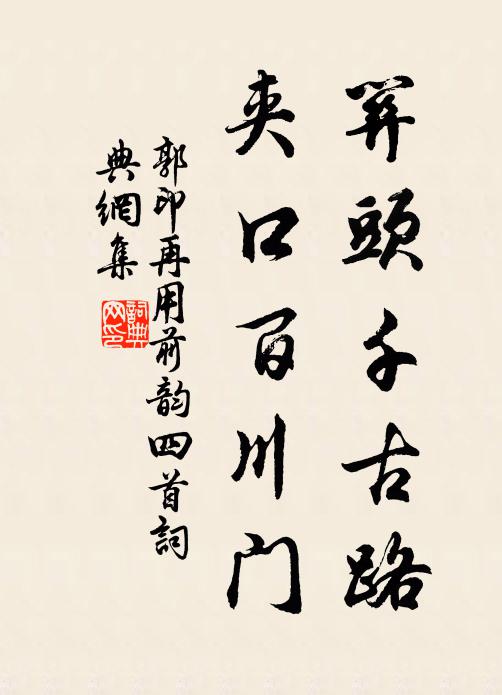 笄頭千古路
夹口百川门
郭印再用前韵四首詞
典網集
詞典
网印